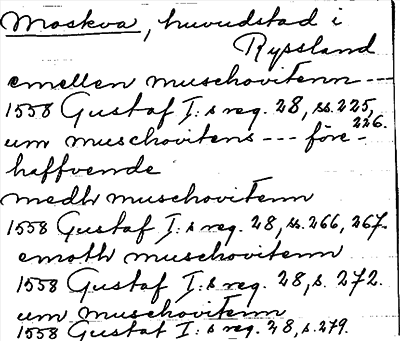 Moskva, huvudstad i
Ryssland
emellen muschovitenn ---
1558 Gustaf I:s reg. 28, ss. 225, 226.
um muschovitens --- före-
haffvende
medh muschovitenn
1558 Gustaf I:s reg. 28, ss. 266, 267.
emoth muschovitenn
1558 Gustaf I:s reg. 28, s. 272.
um muschovitenn
1558 Gustaf I:s reg. 28, s. 279.